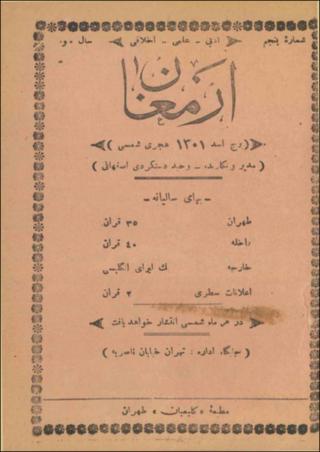 شمارهٔ پنجم ادبی - علمی - اخلاقی سال دوم
ارمغان
( برج اسد ۱۳۰۱ هجری شمسی )
( مدیر و نگارنده - وحید دستگردی اصفهانی )
- بهای سالیانه -
طهران ۳۵ قران
داخله ۴۰ قران
خارجه یک لیرای انگلیسی
اعلانات سطری ۲ قران
در هر ماه شمسی انتشار خواهد یافت
( جایگاه اداره : تهران خیابان ناصریه )
مطبعهٔ « کلیمیان » طهران